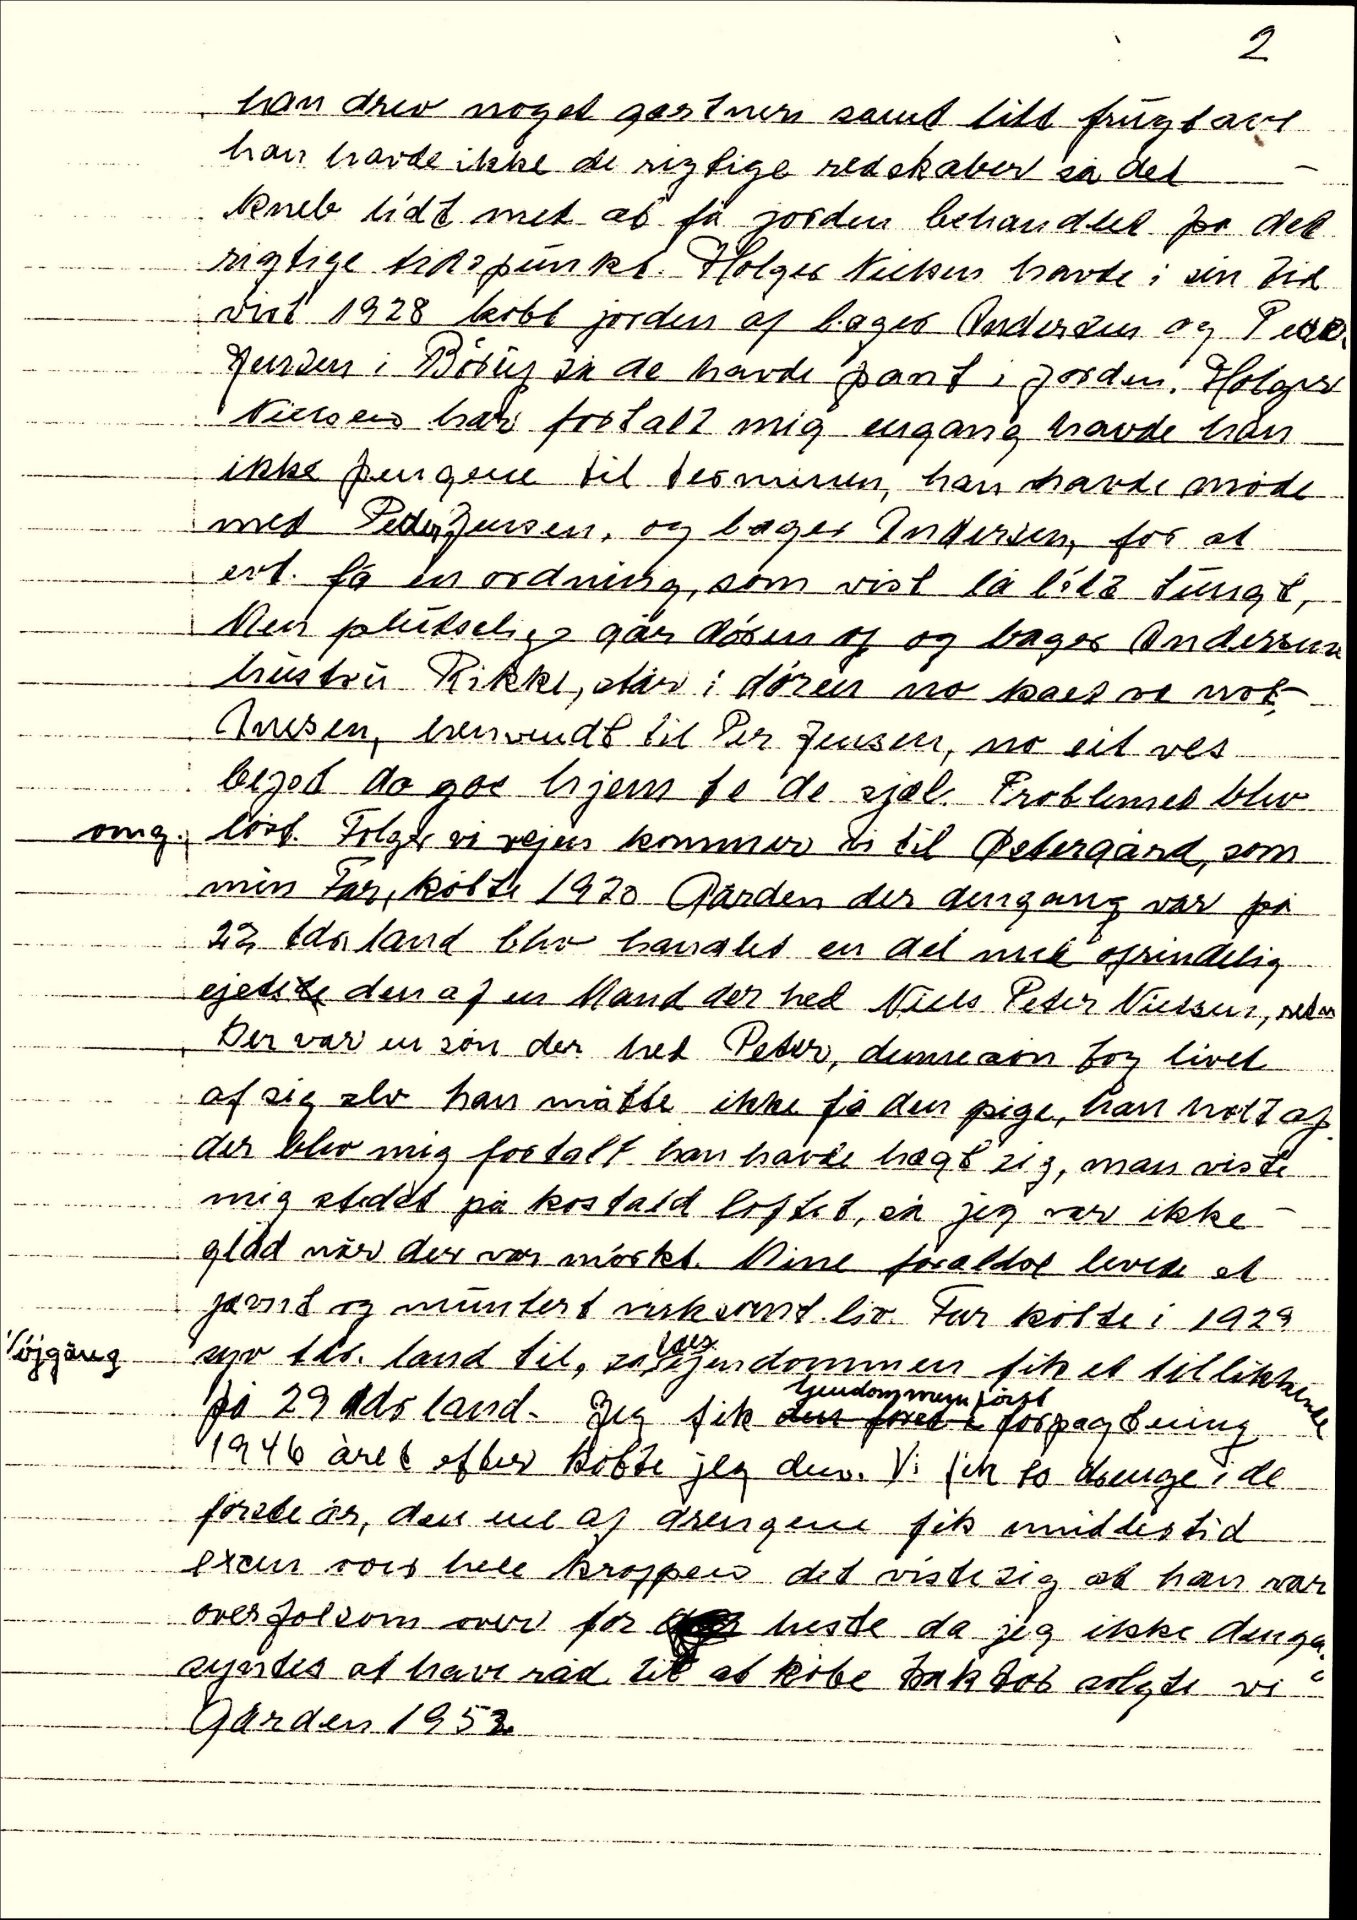 2
han drev noget gartneri samt lidt frugtavl
han havde ikke de rigtige redskaber så det
kneb lidt med at få jorden behandlet på det
rigtige tidspunkt. Holger Nielsen havde i sin tid
vist 1928 købt jorden af bager Andersen og Peder
Jensen i Börup så de havde pant i jorden. Holger
Nielsen har fortalt mig engang havde han
ikke pengene til terminen, han havde møde
med Peder Jensen, og bager Andersen, for at
evt. få en ordning, som vist lå lidt tungt,
Men plutselig går døren op og bager Andersens
hustru Rikke, står i døren no kaes
henvendt til Per Jensen, no
da goe hjem te de sjæl. Problemet blev
omg. løst. Følger vi vejen kommer vi til Østergård, som
min Far, købte 1920 Gården der dengang var på
22 tdr land blev handlet en del med oprindelig
den af en Mand der hed Niels Peter Nielsen,
Der var en søn der hed Peter, denne søn tog livet
af sig slv han måtte ikke få den pige, han holt af
der blev mig fortalt han havde hægt sig, man viste
mig stedet på kostald loftet, så jeg var ikke
glad når der var mörkt. Mine forældre levede et
jævnt og muntert virksomt liv. Far købte i 1929
Vöjgäng syv tdr. land til, så ejendommen fik et tillikkende
på 29 tdr land. Jeg fik ejendommen först i forpagtning
1946 året efter købte jeg den. Vi fik to drenge i de
første år, den ene af drengene fik imidlertid
exem over hele kroppen det viste sig at han var
overfølsom over for heste da jeg ikke denga.
syntes at have råd til at købe traktor solgte vi
Gården 1952